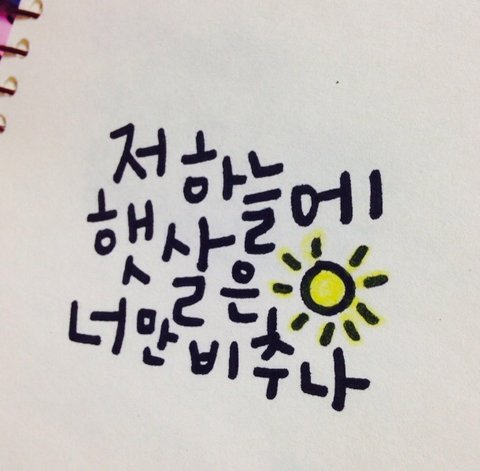 저 하늘에
햇살은
너만 비추나